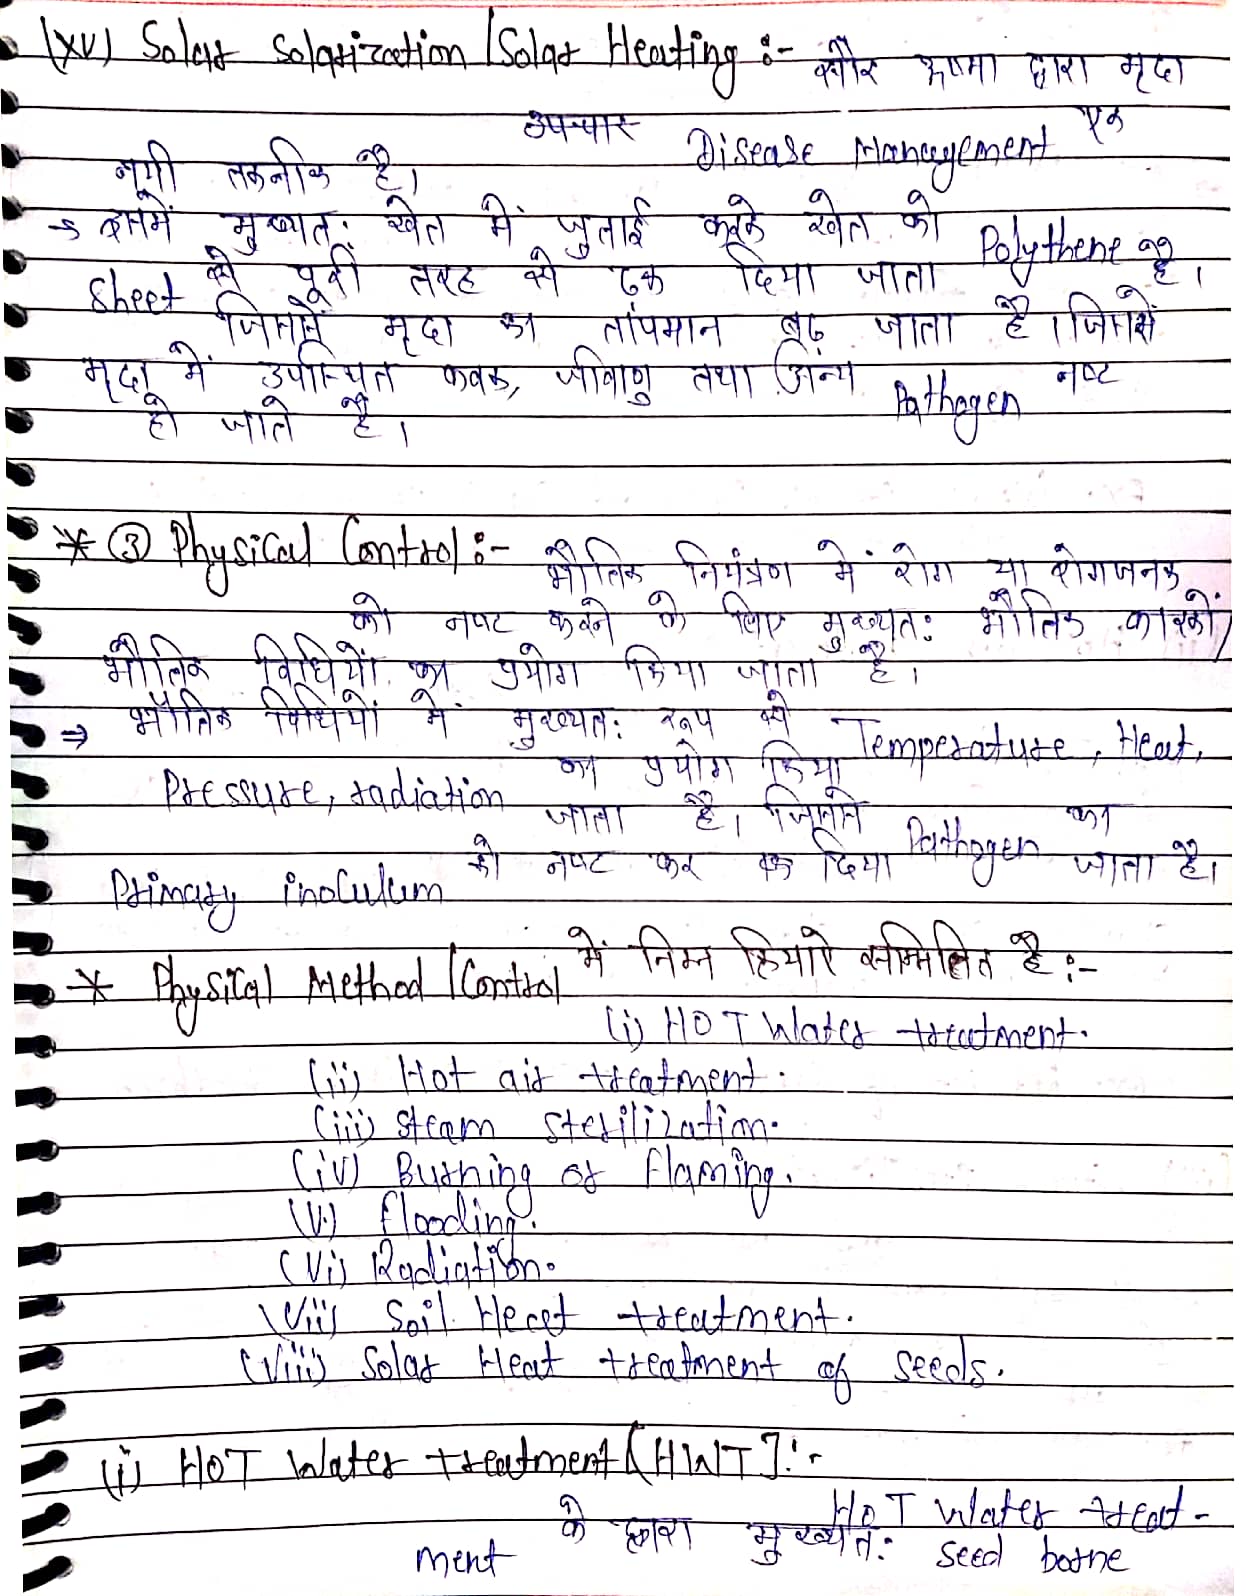 (XV) Solar Solarization / Solar Heating :- सौर ऊष्मा द्वारा मृदा
उपचार Disease Management एक
नयी तकनीक है।
→ इसमें मुख्यत: खेत में जुताई करके खेत को Polythene
Sheet से पूरी तरह से ढक दिया जाता है।
जिससे मृदा का तापमान बढ़ जाता है। जिससे
मृदा में उपस्थित कवक, जीवाणु तथा अन्य Pathogen नष्ट
हो जाते है।
* ③ Physical Control :- भौतिक नियंत्रण में रोग या रोगजनक
को नष्ट करने के लिए मुख्यत: भौतिक कारकों/
भौतिक विधियों का प्रयोग किया जाता है।
⇒ भौतिक विधियों में मुख्यत: रूप से Temperature, Heat,
Pressure, radiation का प्रयोग किया
जाता है। जिससे Pathogen का
Primary inoculum को नष्ट कर दिया जाता है।
* Physical Method / Control में निम्न क्रियाऐ सम्मिलित है :-
(i) HOT Water treatment.
(ii) Hot air treatment.
(iii) Steam Sterilization.
(iv) Burning or flaming.
(v) flooding.
(vi) Radiation.
(vii) Soil Heat treatment.
(viii) Solar Heat treatment of seeds.
(i) HOT Water treatment (HWT] :-
HOT Water treat-
ment के द्वारा मुख्यत: seed borne